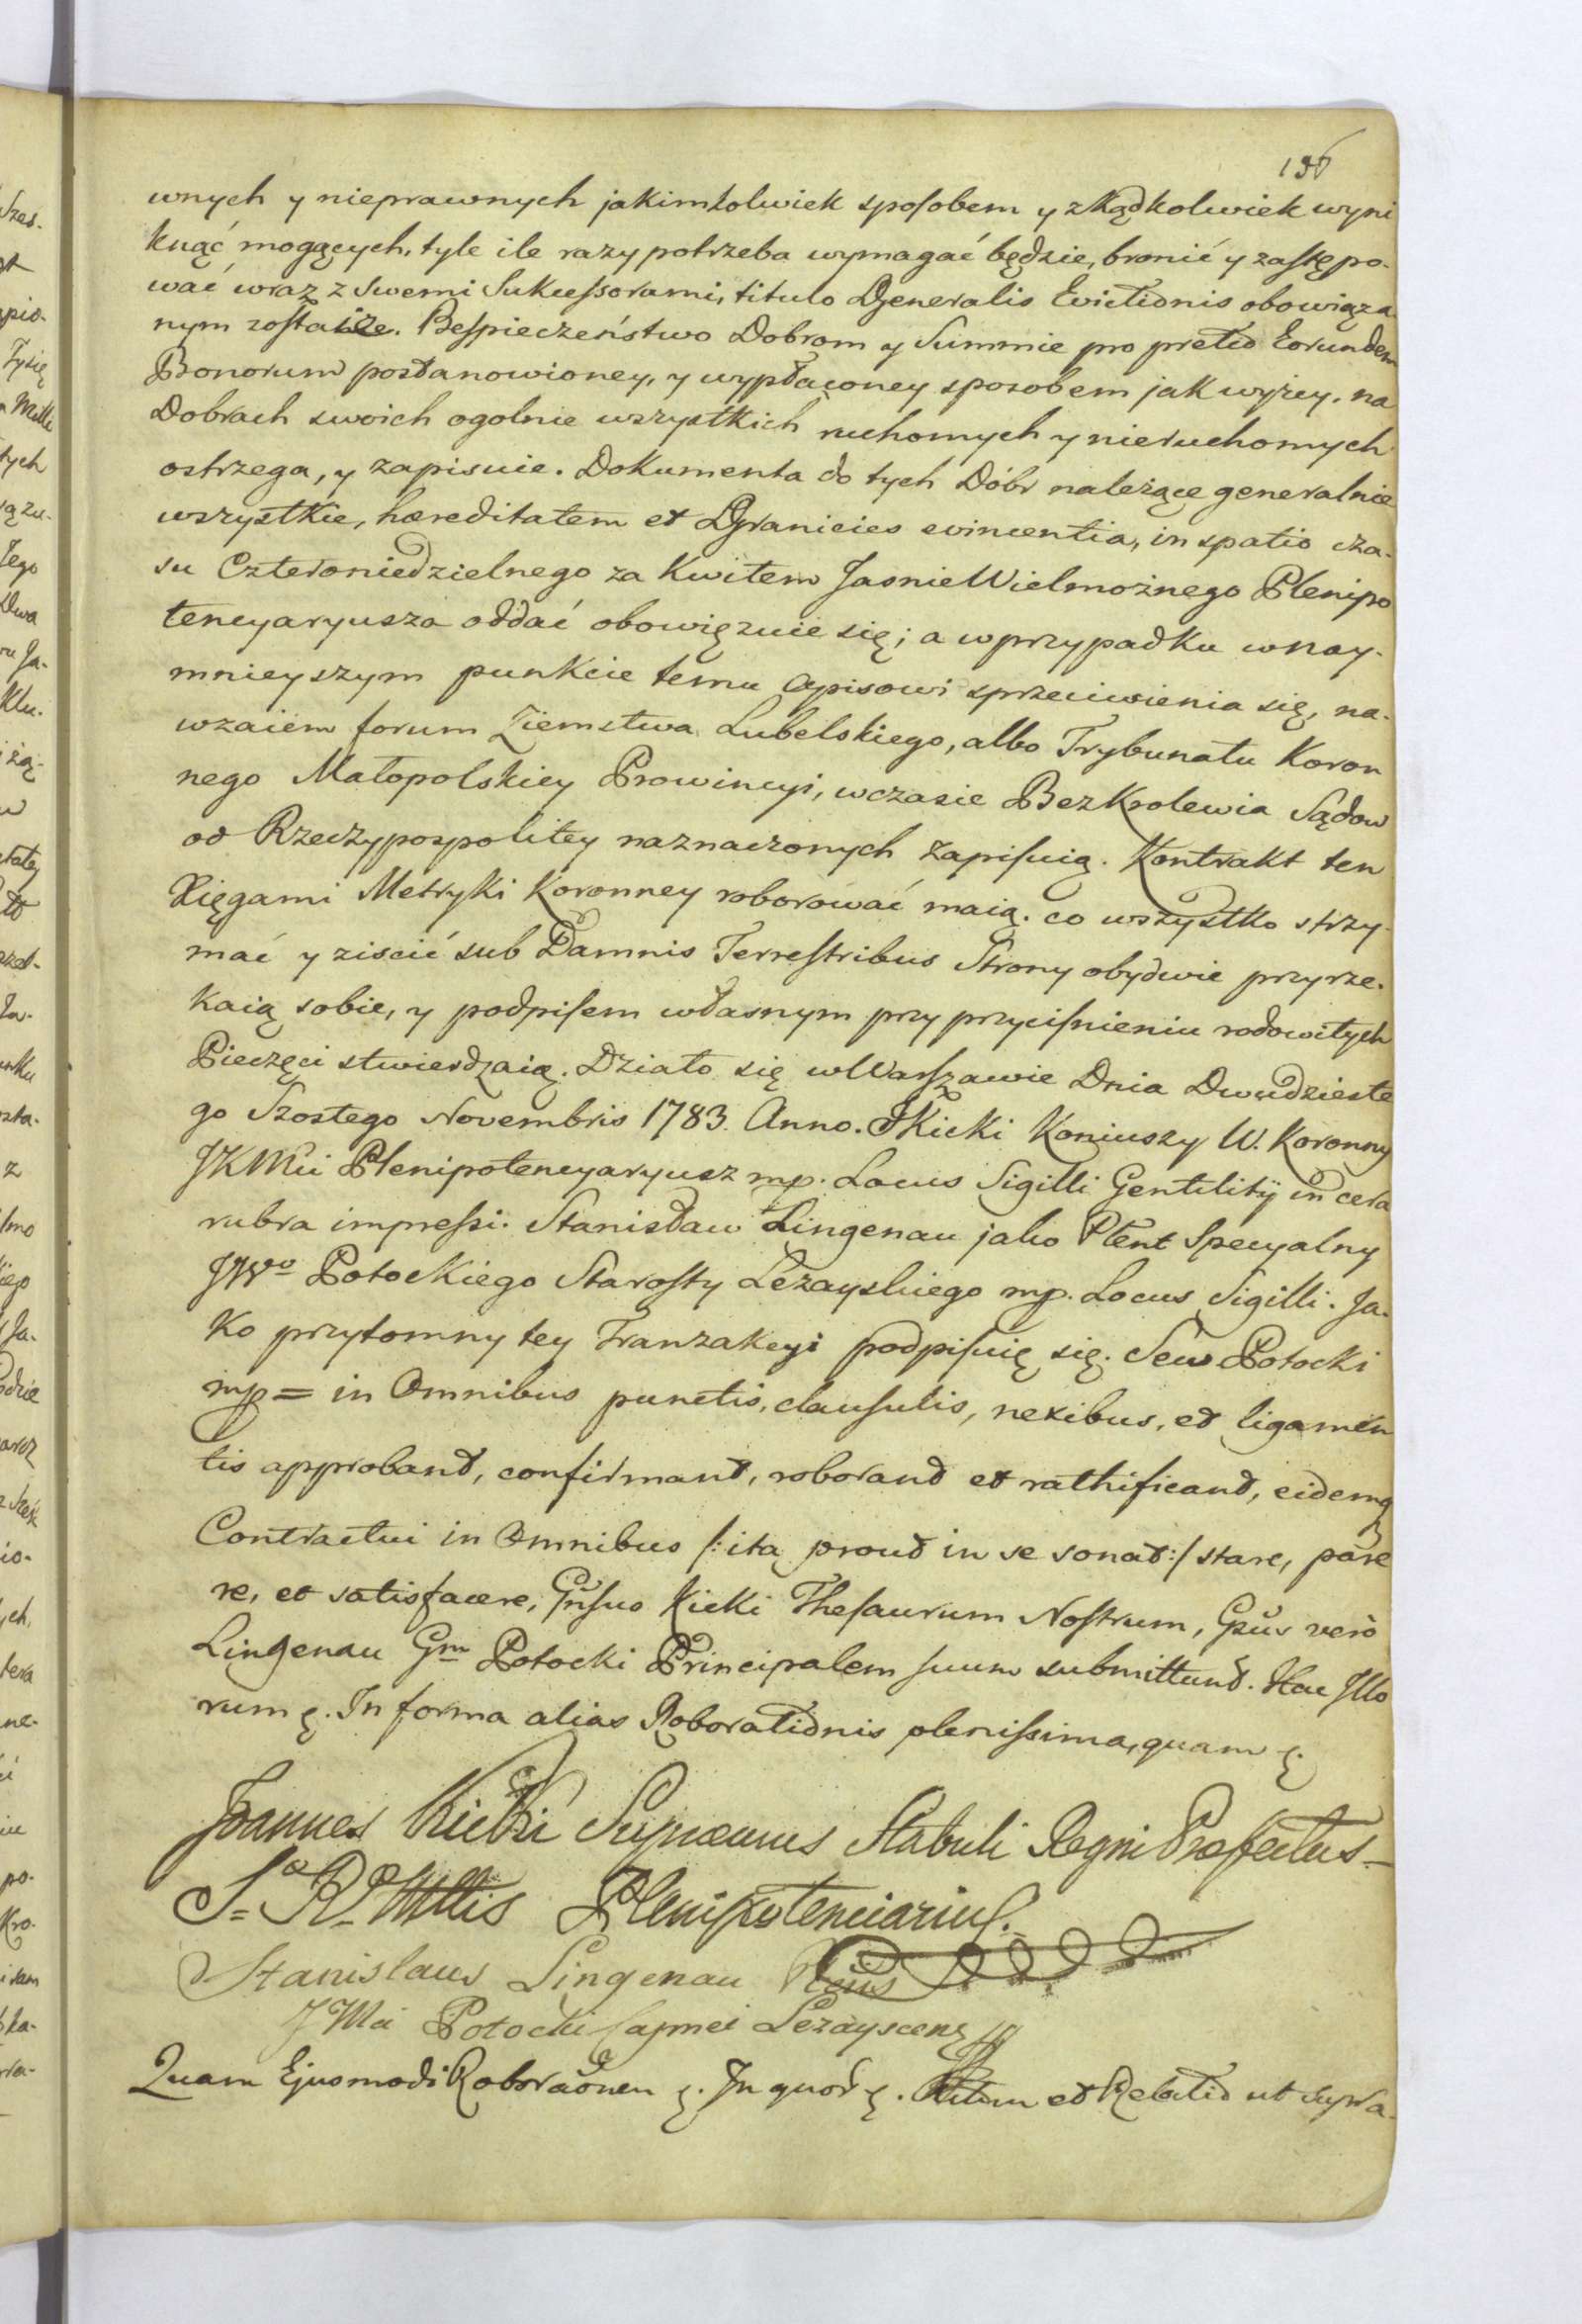 196
wnych y nieprawnych jakimkolwiek sposobem y zkądkolwiek wyni
knąć mogących, tyle ile razy potrzeba wymagać będzie, bronić y zastępo-
wać wraz z Swemi Sukcessorami, titulo Generalis Evictionis obowiąza
nym zostaie. Bespieczeństwo Dobrom y Summie pro pretio Eorundem
Bonorum postanowioney, y wypłaconey sposobem jak wyżey. na
Dobrach swoich ogolnie wszystkich ruchomych y nieruchomych
ostrzega, y zapisuie. Dokumenta do tych Dóbr należące generalnie
wszystkie, hæreditatem et Granicies evincentia, in spatio cza-
su Czteroniedzielnego za Kwitem JasnieWielmożnego Plenipo
tencyaryusza oddać obowięzuie się; a wprzypadku wnay-
mnieyszym punkcie temu opisowi sprzeciwienia się, na-
wzaiem forum Ziemstwa Lubelskiego, albo Trybunału Koron
nego Małopolskiey Prowincyi, wczasie BezKrolewia Sądow
od Rzeczypospolitey naznaczonych zapisuią. Kontrakt ten
Xięgami Metryki Koronney roborować maią. co wszystko strzy-
mać y ziscić sub Damnis Terrestribus Strony obydwie przyrze-
kaią sobie, y podpisem własnym przy przyciśnieniu rodowitych
Pieczęci stwierdzaią. Działo się wWarszawie Dnia Dwudzieste
go Szostego Novembris 1783 Anno. JKicki Koniuszy W. Koronny
JKMci Plenipotencyaryusz mp. Locus Sigilli Gentilitÿ in cera
rubra impressi. Stanisław Lingenau jako Plent Specyalny
JWo Potockiego Starosty Leżayskiego mp. Locus Sigilli. Ja-
ko przytomny tey Tranzakcyi podpisuię się. Sew Potocki
mp = in Omnibus punctis, clausulis, nexibus, et ligamen
tis approband, confirmand, roborand et rathificand, eidemq
Contractui in Omnibus /: ita prout in se sonat :/ stare, pare
re, et satisfacere, Kicki Thesaurum Nostrum, verò
Lingenau Gm Potocki Principalem suum submittund. Hac Illo
rum. In forma alias Roborationis plenissima, quam
Joannes Kicki Supremus Stabuli Regni Præfectus
S. R. Mttis Plenipotenciarius.
Stanislaus Lingenau
JMci Potocki Capnei Lezayscens
Quam Ejusmodi Roboraõnem. In quor. et Relatio ut supra